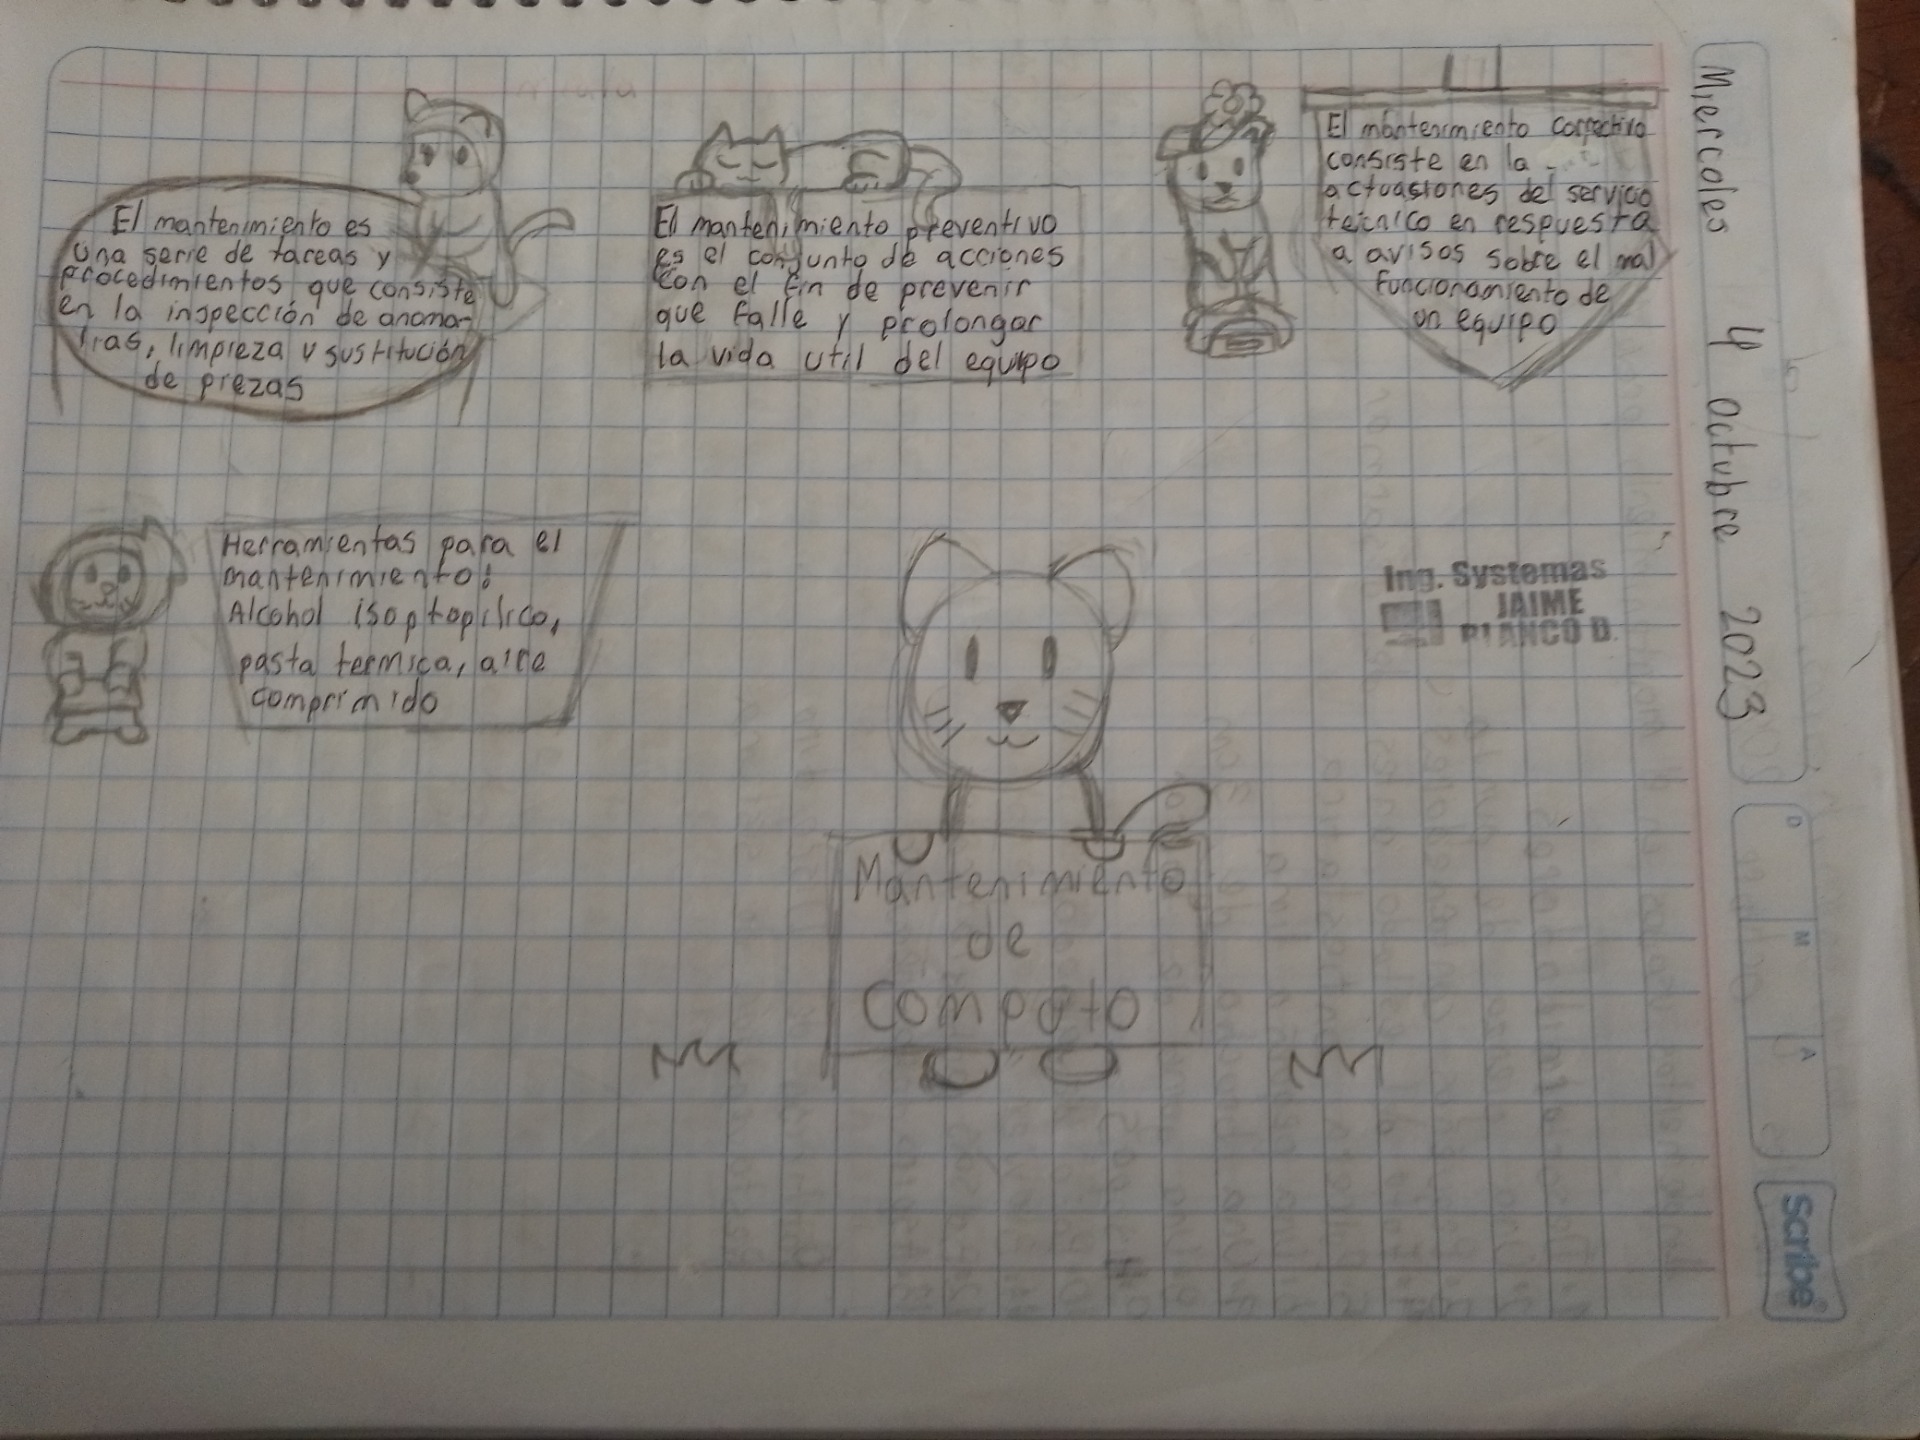 El mantenimiento es
una serie de tareas y
procedimientos que consiste
en la inspección de anoma-
lias, limpieza y sustitución
de piezas
El mantenimiento preventivo
es el conjunto de acciones
con el fin de prevenir
que falle y prolongar
la vida util del equipo
El mantenimiento correctivo
consiste en la
actuasiones del servicio
tecnico en respuesta
a avisos sobre el mal
funcionamiento de
un equipo
Herramientas para el
mantenimiento:
Alcohol isoptopilico,
pasta termica, aire
comprimido
Mantenimiento
de
Computo
Ing. Systemas
JAIME
BLANCO D.
Miercoles 4 octubre 2023
D
M
A
Scribe